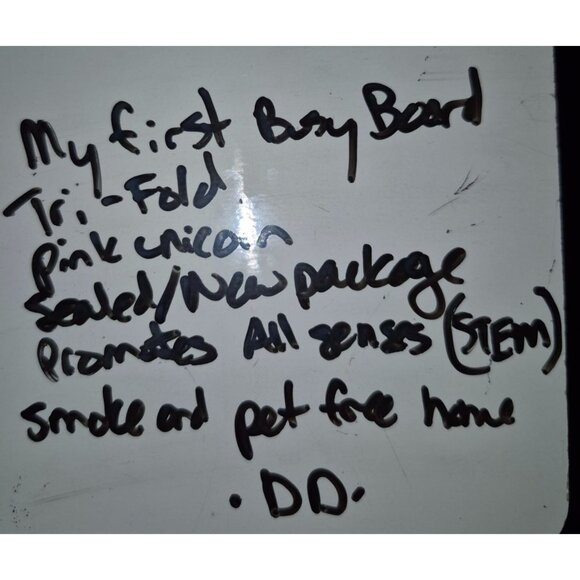 My first Busy Board
Tri-Fold
Pink unicorn
Sealed/New package
Promotes All senses (STEM)
smoke and pet free home
.DD.